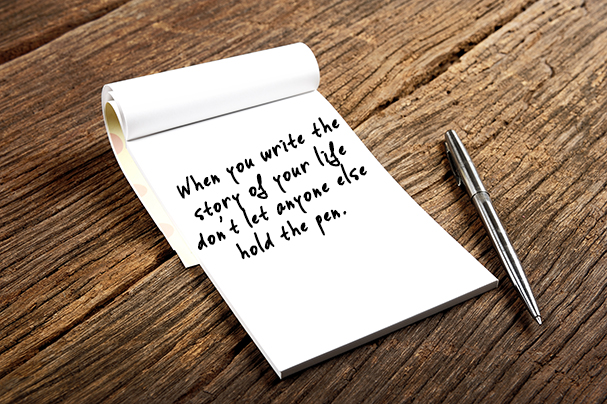 When you write the
story of your life
don't let anyone else
hold the pen.